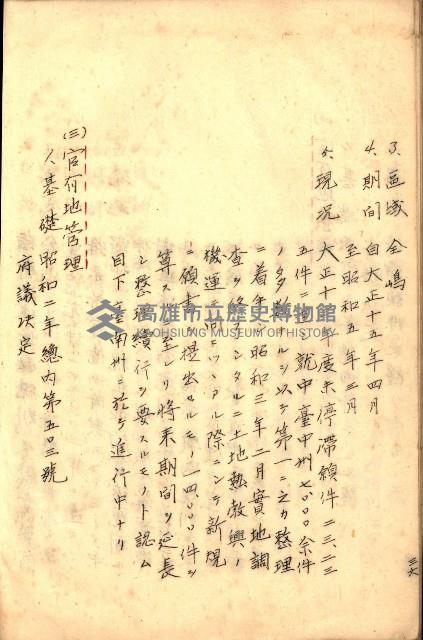 3、區域 全嶋
4、期間 自大正十五年四月
至昭和五年三月
5、現況 大正十 年度末停滯願件二三、二三
五件ニシテ就中臺中州七、〇〇〇余件
ノ多數ナルヲ以テ第一ニ之カ整理
ニ着手シ昭和三年二月實地調
查ヲ終 シタルニ土地熱勃興ノ
機運ニ向ヒツヽアル際ニシテ新規
ニ願書ヲ提出セルモノ一四、〇〇〇件ヲ
算スルニ至レリ將来期間ヲ延長
シ整理續行ヲ要スルモノト認ム
目下臺南州ニ於テ進行中ナリ
(三)官有地管理
1、基礎 昭和二年總內第五〇三號
府議決定
三六
高雄市立歷史博物館
KAOHSIUNG MUSEUM OF HISTORY